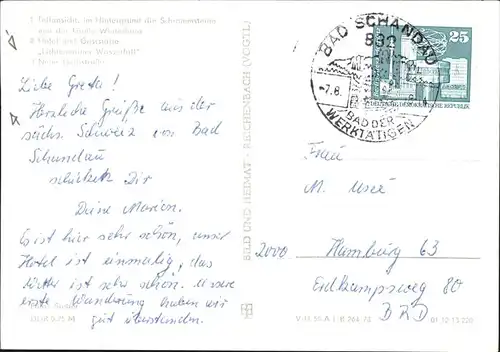 1 Teilansicht, im Hintergrund die Schrammsteine
2 Hotel und Gaststätte
„Lichtenhainer Wasserfall“
Liebe Greta!
Herzliche Grüße aus der
sächs. Schweiz von Bad
Schandau
schickt Dir
Deine Marion.
Es ist hier sehr schön, unser
Hotel ist einmalig, das
Wetter ist sehr schön. Unsere
erste Wanderung haben wir
gut überstanden.
BILD UND HEIMAT · REICHENBACH (VOGTL)
BAD SCHANDAU
-7.8.
BAD DER
WERKTÄTIGEN
25
DEUTSCHE DEMOKRATISCHE REPUBLIK
Frau
M.
2000 Hamburg 63
80
BRD
01 12 13 220